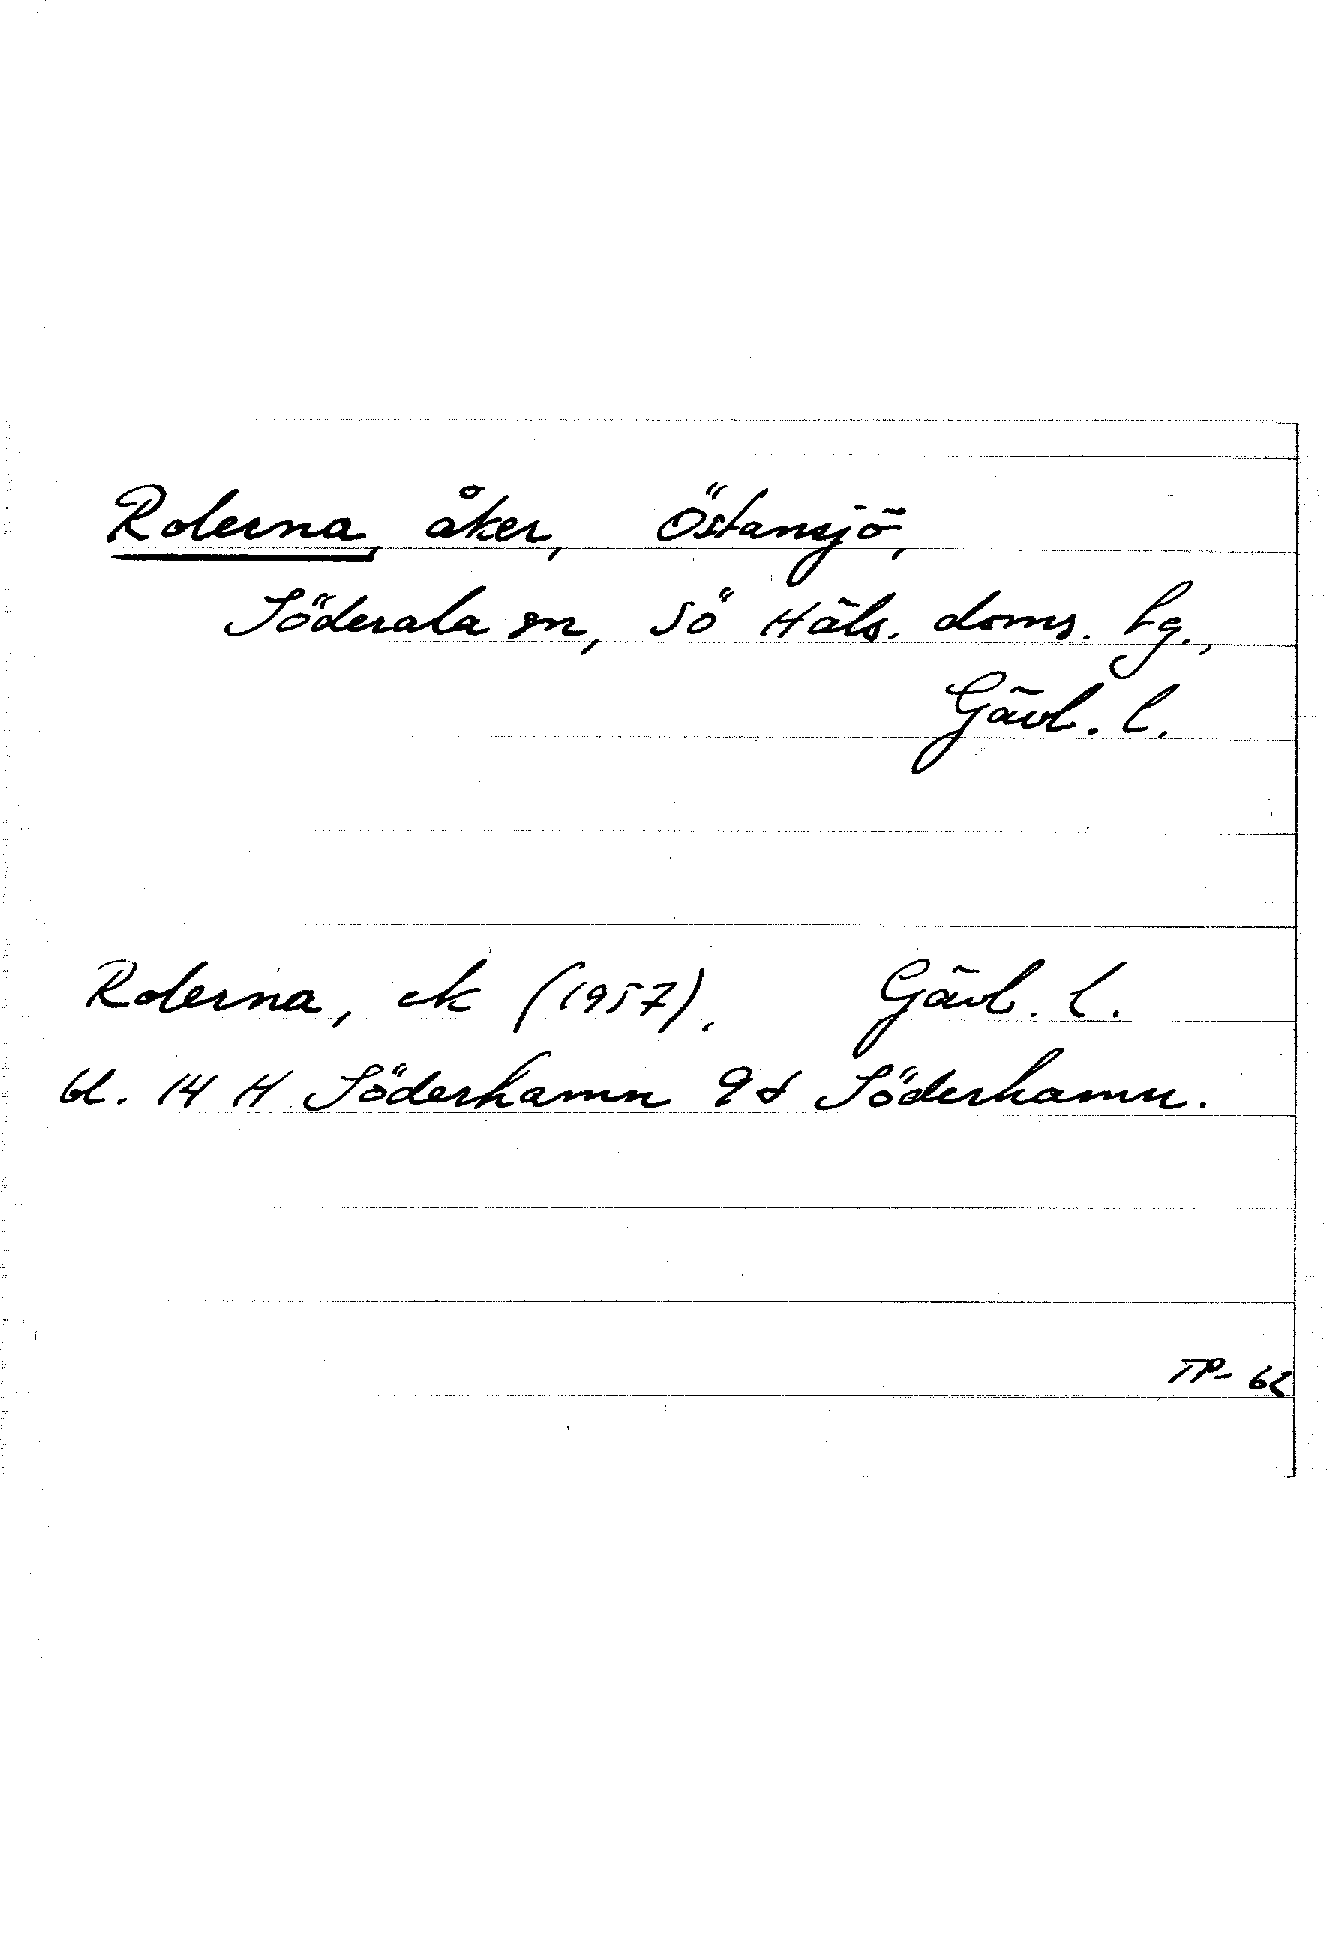 Rolerna, åker, Östansjö,
Söderala sn, Sö Häls. doms. tg.,
Gävl. l.
Rolerna, ek (1957). Gävl. l.
bl. 14 H Söderhamn 9d Söderhamn.
TP- 62